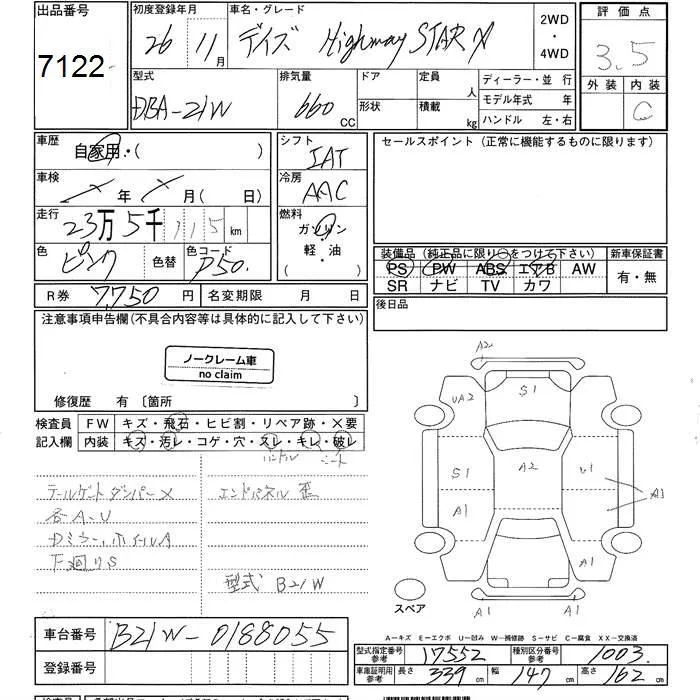 出品番号
7122
初度登録年月
26年 11月
車名・グレード
デイズ Highway STAR X
2WD・4WD
評価点
3.5
外装 内装
C
型式
DBA-21W
排気量
660 CC
ドア
形状
定員 人
積載 kg
ディーラー・並行
モデル年式 年
ハンドル 左・右
車歴
自家用・( )
車検
× 年 × 月( 日)
走行
23万5千115 km
色
ピンク
色替
色コード
P50.
シフト
IAT
冷房
AAC
燃料
ガソリン
軽・油
( )
セールスポイント(正常に機能するものに限ります)
装備品(純正品に限り○をつけて下さい)
PS PW ABS エアB AW
SR ナビ TV カワ
新車保証書
有・無
後日品
R券 7,750 円
名変期限 月 日
注意事項申告欄(不具合内容等は具体的に記入して下さい)
ノークレーム車
no claim
修復歴 有〔箇所 〕
検査員
記入欄
FW キズ・飛石・ヒビ割・リペア跡・×要
内装 キズ・汚レ・コゲ・穴・スレ・キレ・破レ
ハンドル シート
テールゲートダンパー×
各A.U
Dミラー,ホイルA
下廻りS
エンドパネル 歪
型式 B21W
A2
UA2
S1
S1
A2
U1
A1
A1
A1
A1
A1
A1
スペア
A-キズ E-エクボ U-凹み W-補修跡 S-サビ C-腐食 XX-交換済
車台番号 B21W-0188055
登録番号
型式指定番号
参考
17552
種別区分番号
参考
1003.
車庫証明用
参考
長さ 339 cm 幅 147 cm 高さ 162 cm